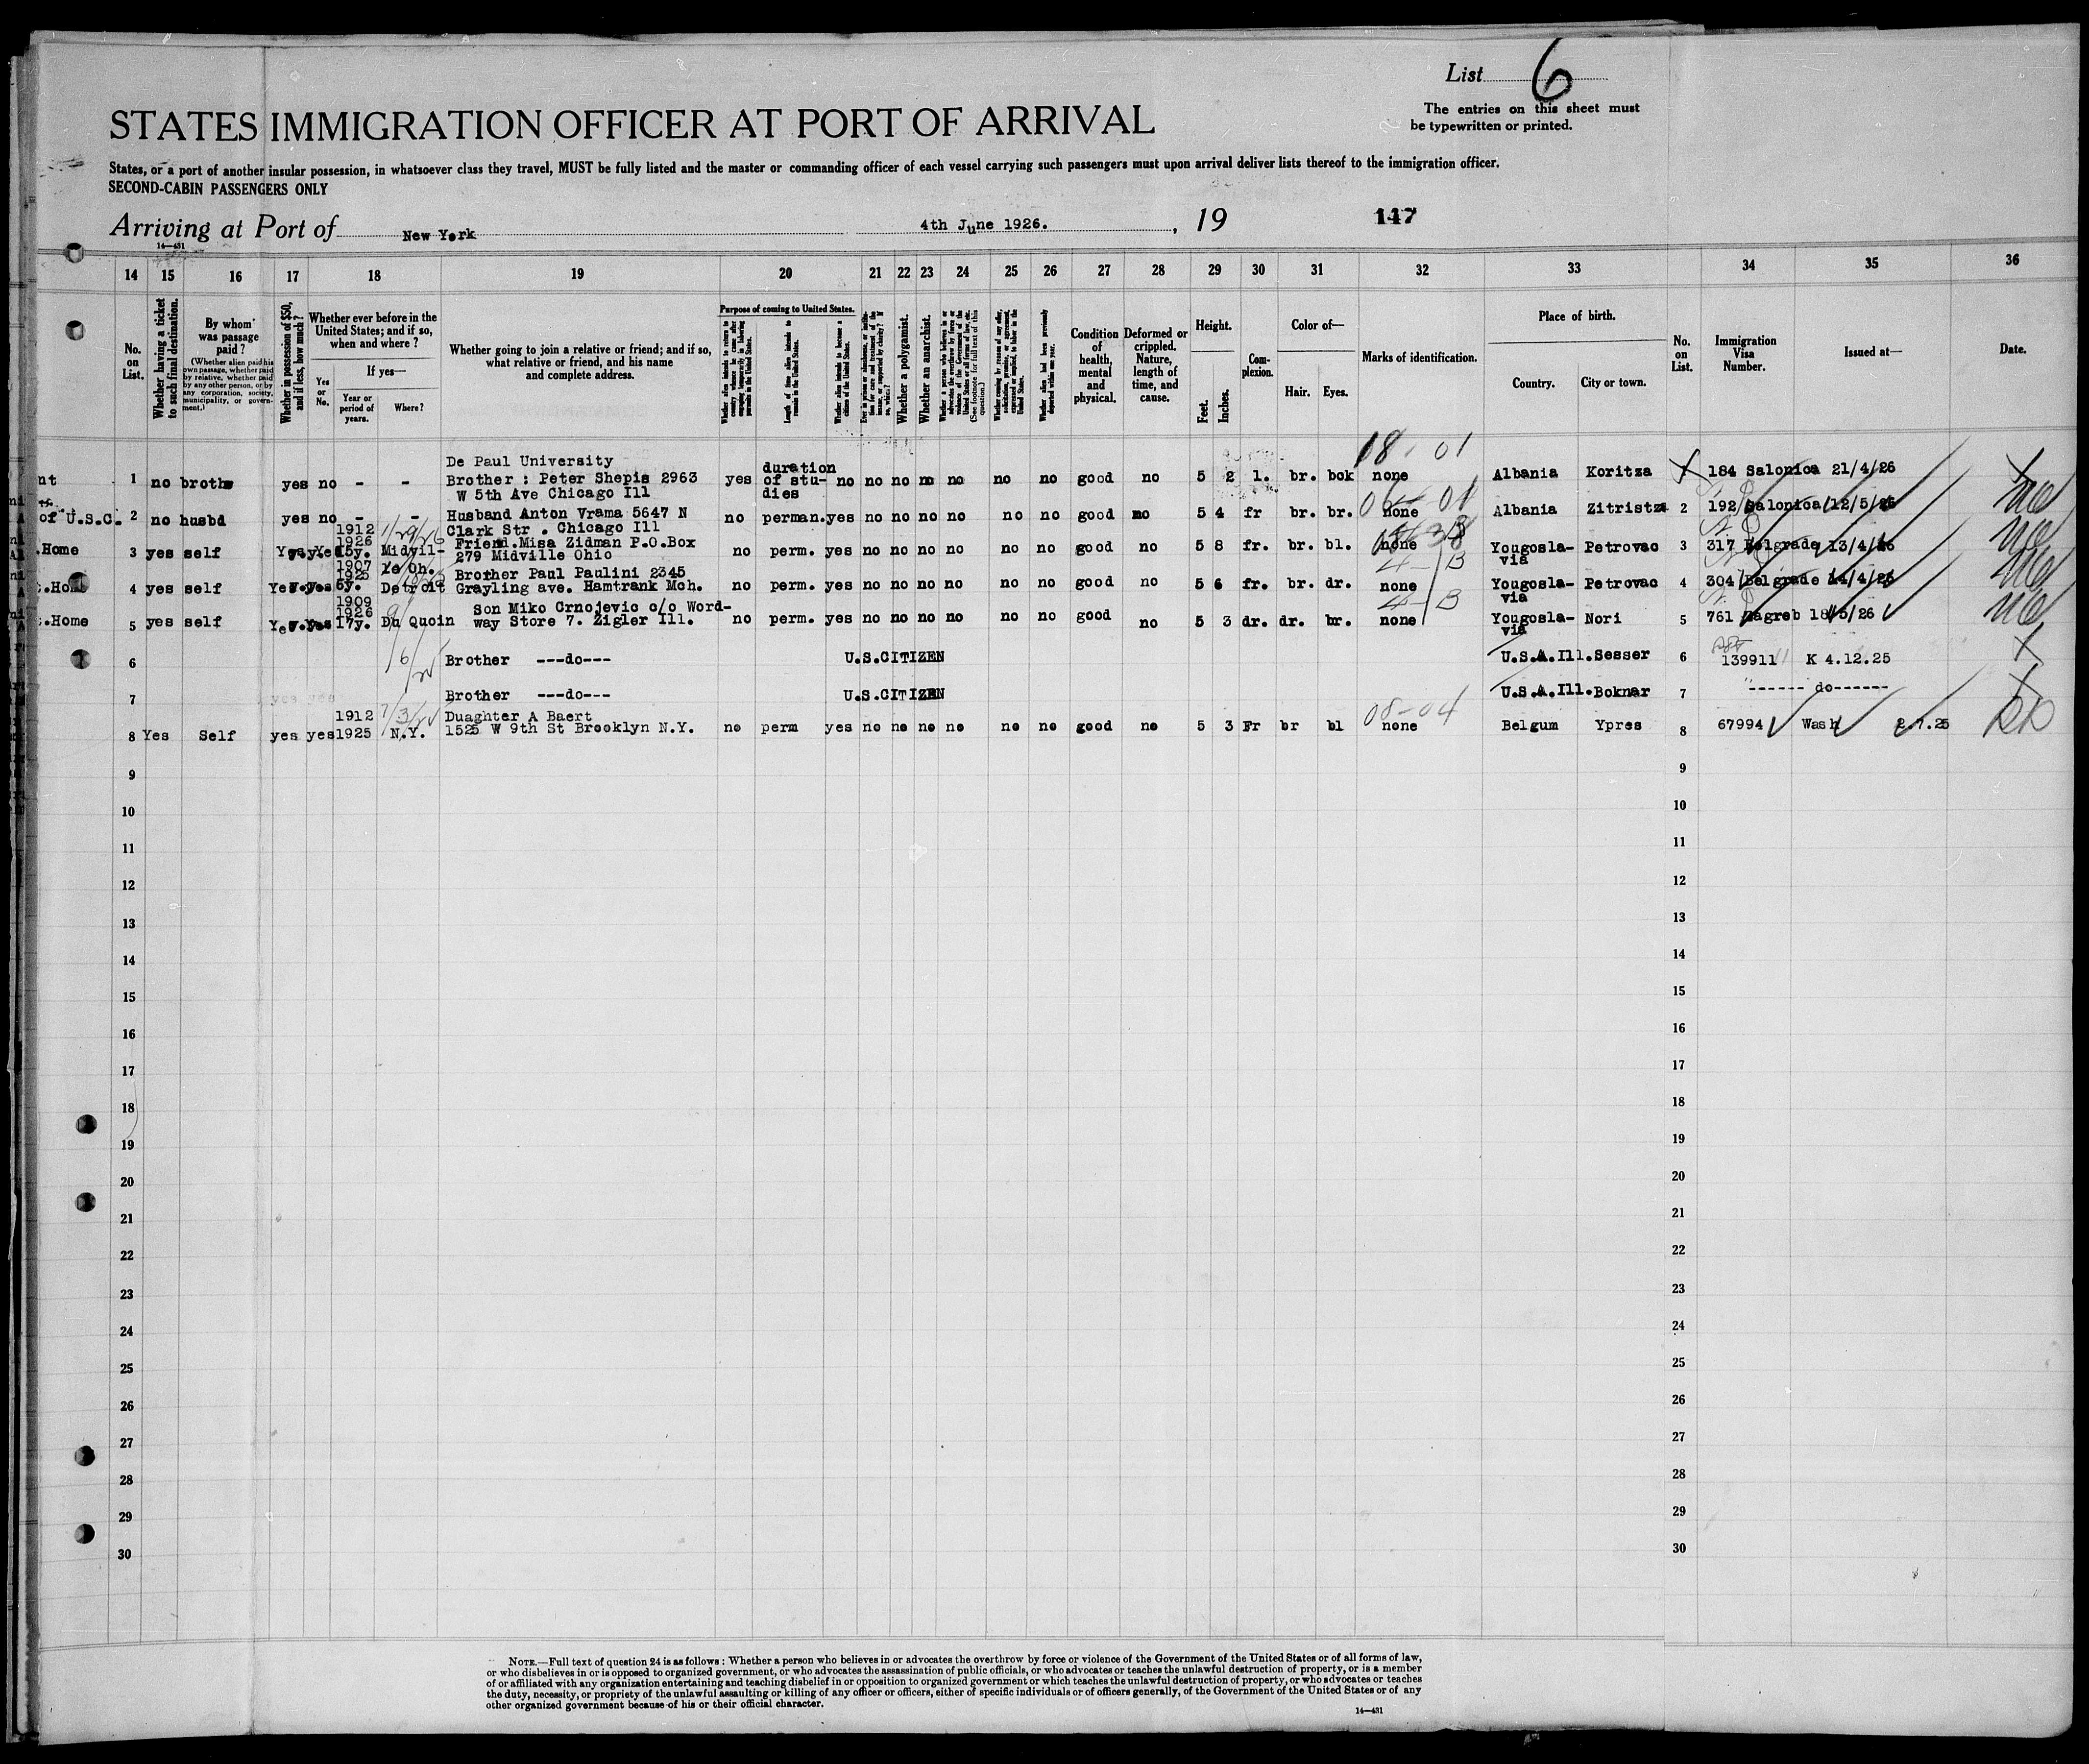 List 6
The entries on this sheet must
be typewritten or printed.
STATES IMMIGRATION OFFICER AT PORT OF ARRIVAL
States, or a port of another insular possession, in whatsoever class they travel, MUST be fully listed and the master or commanding officer of each vessel carrying such passengers must upon arrival deliver lists thereof to the immigration officer.
SECOND-CABIN PASSENGERS ONLY
Arriving at Port of New York 4th June 1926. , 19 147
14—431
14 15 16 17 18 19 20 21 22 23 24 25 26 27 28 29 30 31 32 33 34 35 36
No. on List.
Whether having a ticket to such final destination.
By whom was passage paid?
(Whether alien paid his own passage, whether paid by relative, whether paid by any other person, or by any corporation, society, municipality, or government.)
Whether in possession of $50, and if less, how much?
Whether ever before in the United States; and if so, when and where?
Yes or No.
If yes—
Year or period of years.
Where?
Whether going to join a relative or friend; and if so, what relative or friend, and his name and complete address.
Purpose of coming to United States.
Whether a polygamist.
Whether an anarchist.
Condition of health, mental and physical.
Deformed or crippled. Nature, length of time, and cause.
Height.
Feet.
Inches.
Complexion.
Color of—
Hair.
Eyes.
Marks of identification.
Place of birth.
Country.
City or town.
No. on List.
Immigration Visa Number.
Issued at—
Date.
De Paul University 18 01
nt 1 no broth yes no - - Brother : Peter Shepis 2963 yes duration of stu- dies no no no no no no no good no 5 2 l. br. bok none Albania Koritza 184 Salonica 21/4/26
W 5th Ave Chicago Ill
of U.S.C. 2 no husbd yes no - - Husband Anton Vrama 5647 N no perman. yes no no no no no no good no 5 4 fr br. br. none Albania Zitristza 2 192 Salonica 12/5/26
Clark Str . Chicago Ill
.Home 3 yes self Yes 1912 1926 15y. Midvil- le Oh. Friend.Misa Zidman P.O.Box no perm. yes no no no no no no good no 5 8 fr. br. bl. none Yougosla- via Petrovac 3 317 Belgrade 13/4/26
279 Midville Ohio
.Home 4 yes self yes 1907 1925 Detroit Brother Paul Paulini 2345 no perm. yes no no no no no no good no 5 6 fr. br. dr. none Yougosla- via Petrovac 4 304 Belgrade 14/4/26
Grayling ave. Hamtrank Mch.
.Home 5 yes self 1909 1926 17y. Du Quoin Son Miko Crnojevic c/o Word- no perm. yes no no no no no no good no 5 3 dr. dr. br. none Yougosla- via Nori 5 761 Zagreb 18/5/26
way Store 7. Zigler Ill.
6 Brother ---do--- U.S.CITIZEN U.S.A.Ill. Sesser 6 139911 K 4.12.25
7 Brother ---do--- U.S.CITIZEN U.S.A.Ill. Boknar 7 ------ do------
8 Yes Self yes yes 1912 1925 N.Y. Duaghter A Baert no perm yes no no no no no no good no 5 3 Fr br bl none Belgum Ypres 8 67994 Wash 2.7.25
1525 W 9th St Brooklyn N.Y.
9 9
10 10
11 11
12 12
13 13
14 14
15 15
16 16
17 17
18 18
19 19
20 20
21 21
22 22
23 23
24 24
25 25
26 26
27 27
28 28
29 29
30 30
NOTE.—Full text of question 24 is as follows: Whether a person who believes in or advocates the overthrow by force or violence of the Government of the United States or of all forms of law,
or who disbelieves in or is opposed to organized government, or who advocates the assassination of public officials, or who advocates or teaches the unlawful destruction of property, or is a member
of or affiliated with any organization entertaining and teaching disbelief in or opposition to organized government or which teaches the unlawful destruction of property, or who advocates or teaches
the duty, necessity, or propriety of the unlawful assaulting or killing of any officer or officers, either of specific individuals or of officers generally, of the Government of the United States or of any
other organized government because of his or their official character.
14—431